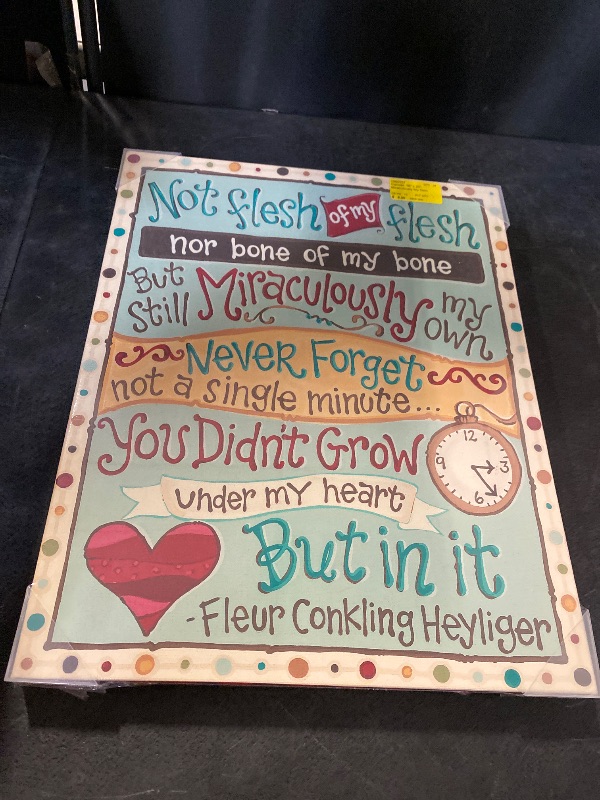 Not flesh of my flesh
nor bone of my bone
But still Miraculously my own
Never Forget
not a single minute...
You Didn't Grow
under my heart
But in it
-Fleur Conkling Heyliger
12
9
3
6